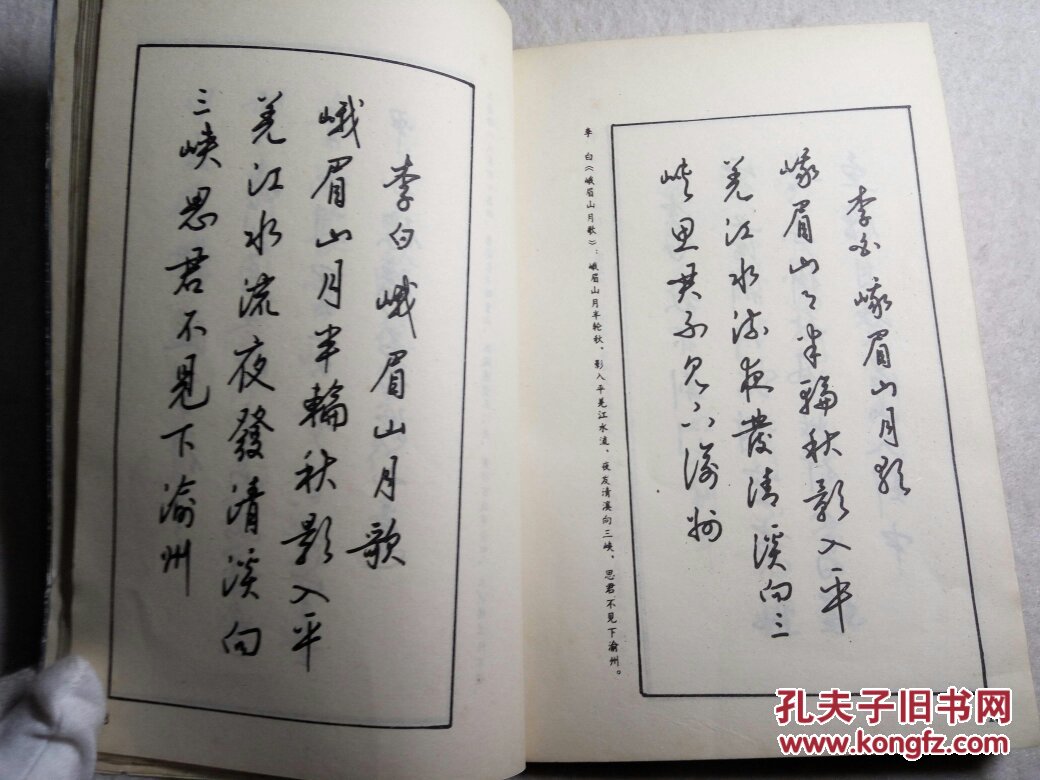 李白峨眉山月歌
峨眉山月半輪秋影入平
羌江水流夜發清溪向
三峡思君不見下渝州
李白峨眉山月歌
峨眉山月半輪秋影入平
羌江水流夜發清溪向三
峡思君不見下渝州
李白《峨眉山月歌》：峨眉山月半轮秋，影入平羌江水流，夜发清溪向三峡，思君不見下渝州。
孔夫子旧书网
www.kongfz.com